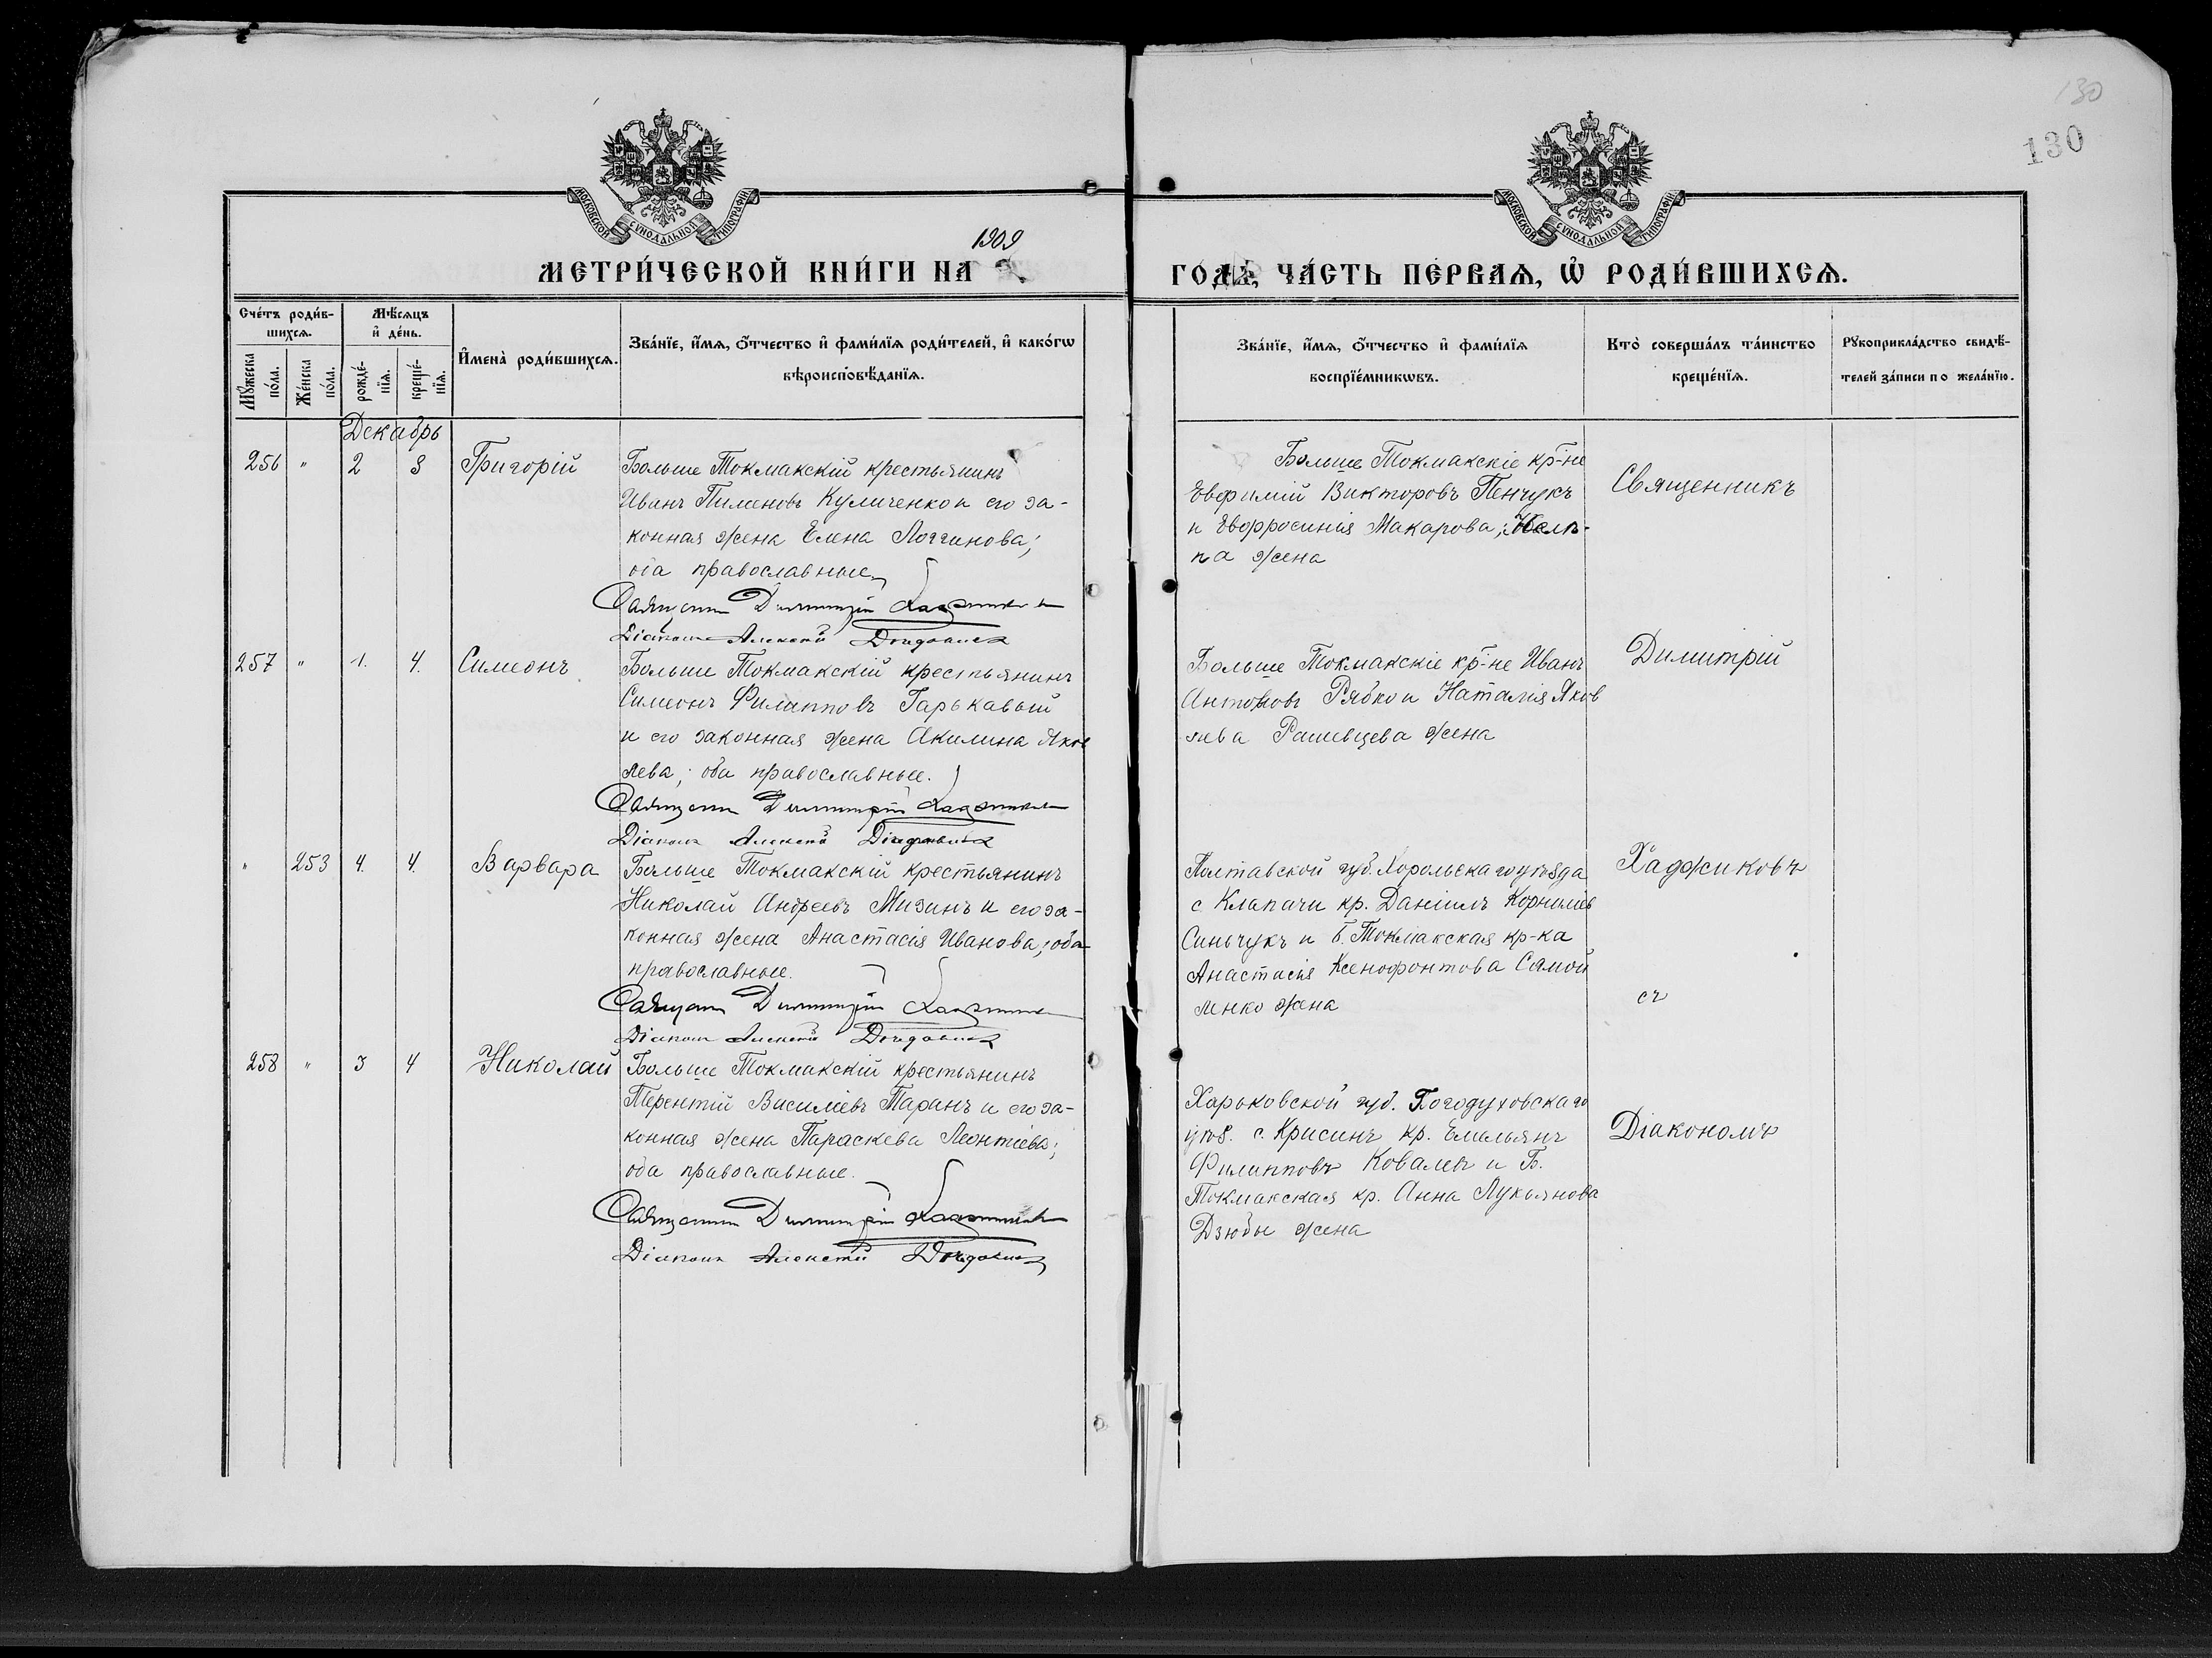 130
130
МОСКОВСКОЙ СѴНОДАЛЬНОЙ ТИПОГРАФІИ
МОСКОВСКОЙ СѴНОДАЛЬНОЙ ТИПОГРАФІИ
1909
МЕТРИ́ЧЕСКОЙ КНИ́ГИ НА
ГОДЪ, ЧА́СТЬ ПЕ́РВАѦ, Ѡ҆ РОДИ́ВШИХСѦ.
Сче́тъ роди́в-
шихсѧ.
Мꙋ́жеска по́ла.
Же́нска по́ла.
Мѣ́сѧцъ
и҆ де́нь.
рожде́-
нїѧ.
креще́-
нїѧ.
И҆мена̀ роди́вшихсѧ.
Зва́нїе, и҆́мѧ, ѻ҆́тчество и҆ фами́лїѧ роди́телей, и҆ како́гѡ
вѣроисповѣ́данїѧ.
Зва́нїе, и҆́мѧ, ѻ҆́тчество и҆ фами́лїѧ
воспрїе́мникѡвъ.
Кто̀ соверша́лъ та́инство
креще́нїѧ.
Рꙋкоприкла́дство свидѣ́-
телей за́писи по жела́нїю.
Декабрь
256 " 2 3 Григорій
Больше Токмакскій крестьянинъ
Иванъ Пименовъ Куличенко и его за-
конная жена Елена Логгинова;
оба православные.
Священникъ Димитрій Хаджиковъ
Діаконъ Алексѣй
Больше Токмакскіе кр-не
Евфимій Викторовъ Пенчукъ
и Евфросинія Макарова,
жена
Священникъ
257 " 1. 4. Симеонъ
Больше Токмакскій крестьянинъ
Симеонъ Филипповъ Гарькавый
и его законная жена Акилина Яков
лева; оба православные.
Священникъ Димитрій Хаджиковъ
Діаконъ Алексѣй
Больше Токмакскіе кр-не Иванъ
Антоновъ Рябко и Наталія Яков
лева Рашевцева жена
Димитрій
" 253 4. 4. Варвара
Больше Токмакскій крестьянинъ
Николай Андреевъ Мизинъ и его за-
конная жена Анастасія Иванова; оба
православные.
Священникъ Димитрій Хаджиковъ
Діаконъ Алексѣй
Полтавской губ. Хорольскаго уѣзда
с. Клапачи кр. Даніилъ Корниліев
Синьчукъ и Б. Токмакская кр-ка
Анастасія Ксенофонтова Самой
ленко жена
Хаджиковъ
съ
258 " 3 4 Николай
Больше Токмакскій крестьянинъ
Терентій Василіевъ Таранъ и его за-
конная жена Параскева Леонтіева;
оба православные.
Священникъ Димитрій Хаджиковъ
Діаконъ Алексѣй
Харьковской губ. Богодуховскаго
уѣз. с. Крисинъ кр. Емельянъ
Филипповъ Ковалевъ и Б.
Токмакская кр. Анна Лукьянова
Дзюбы жена
Діакономъ